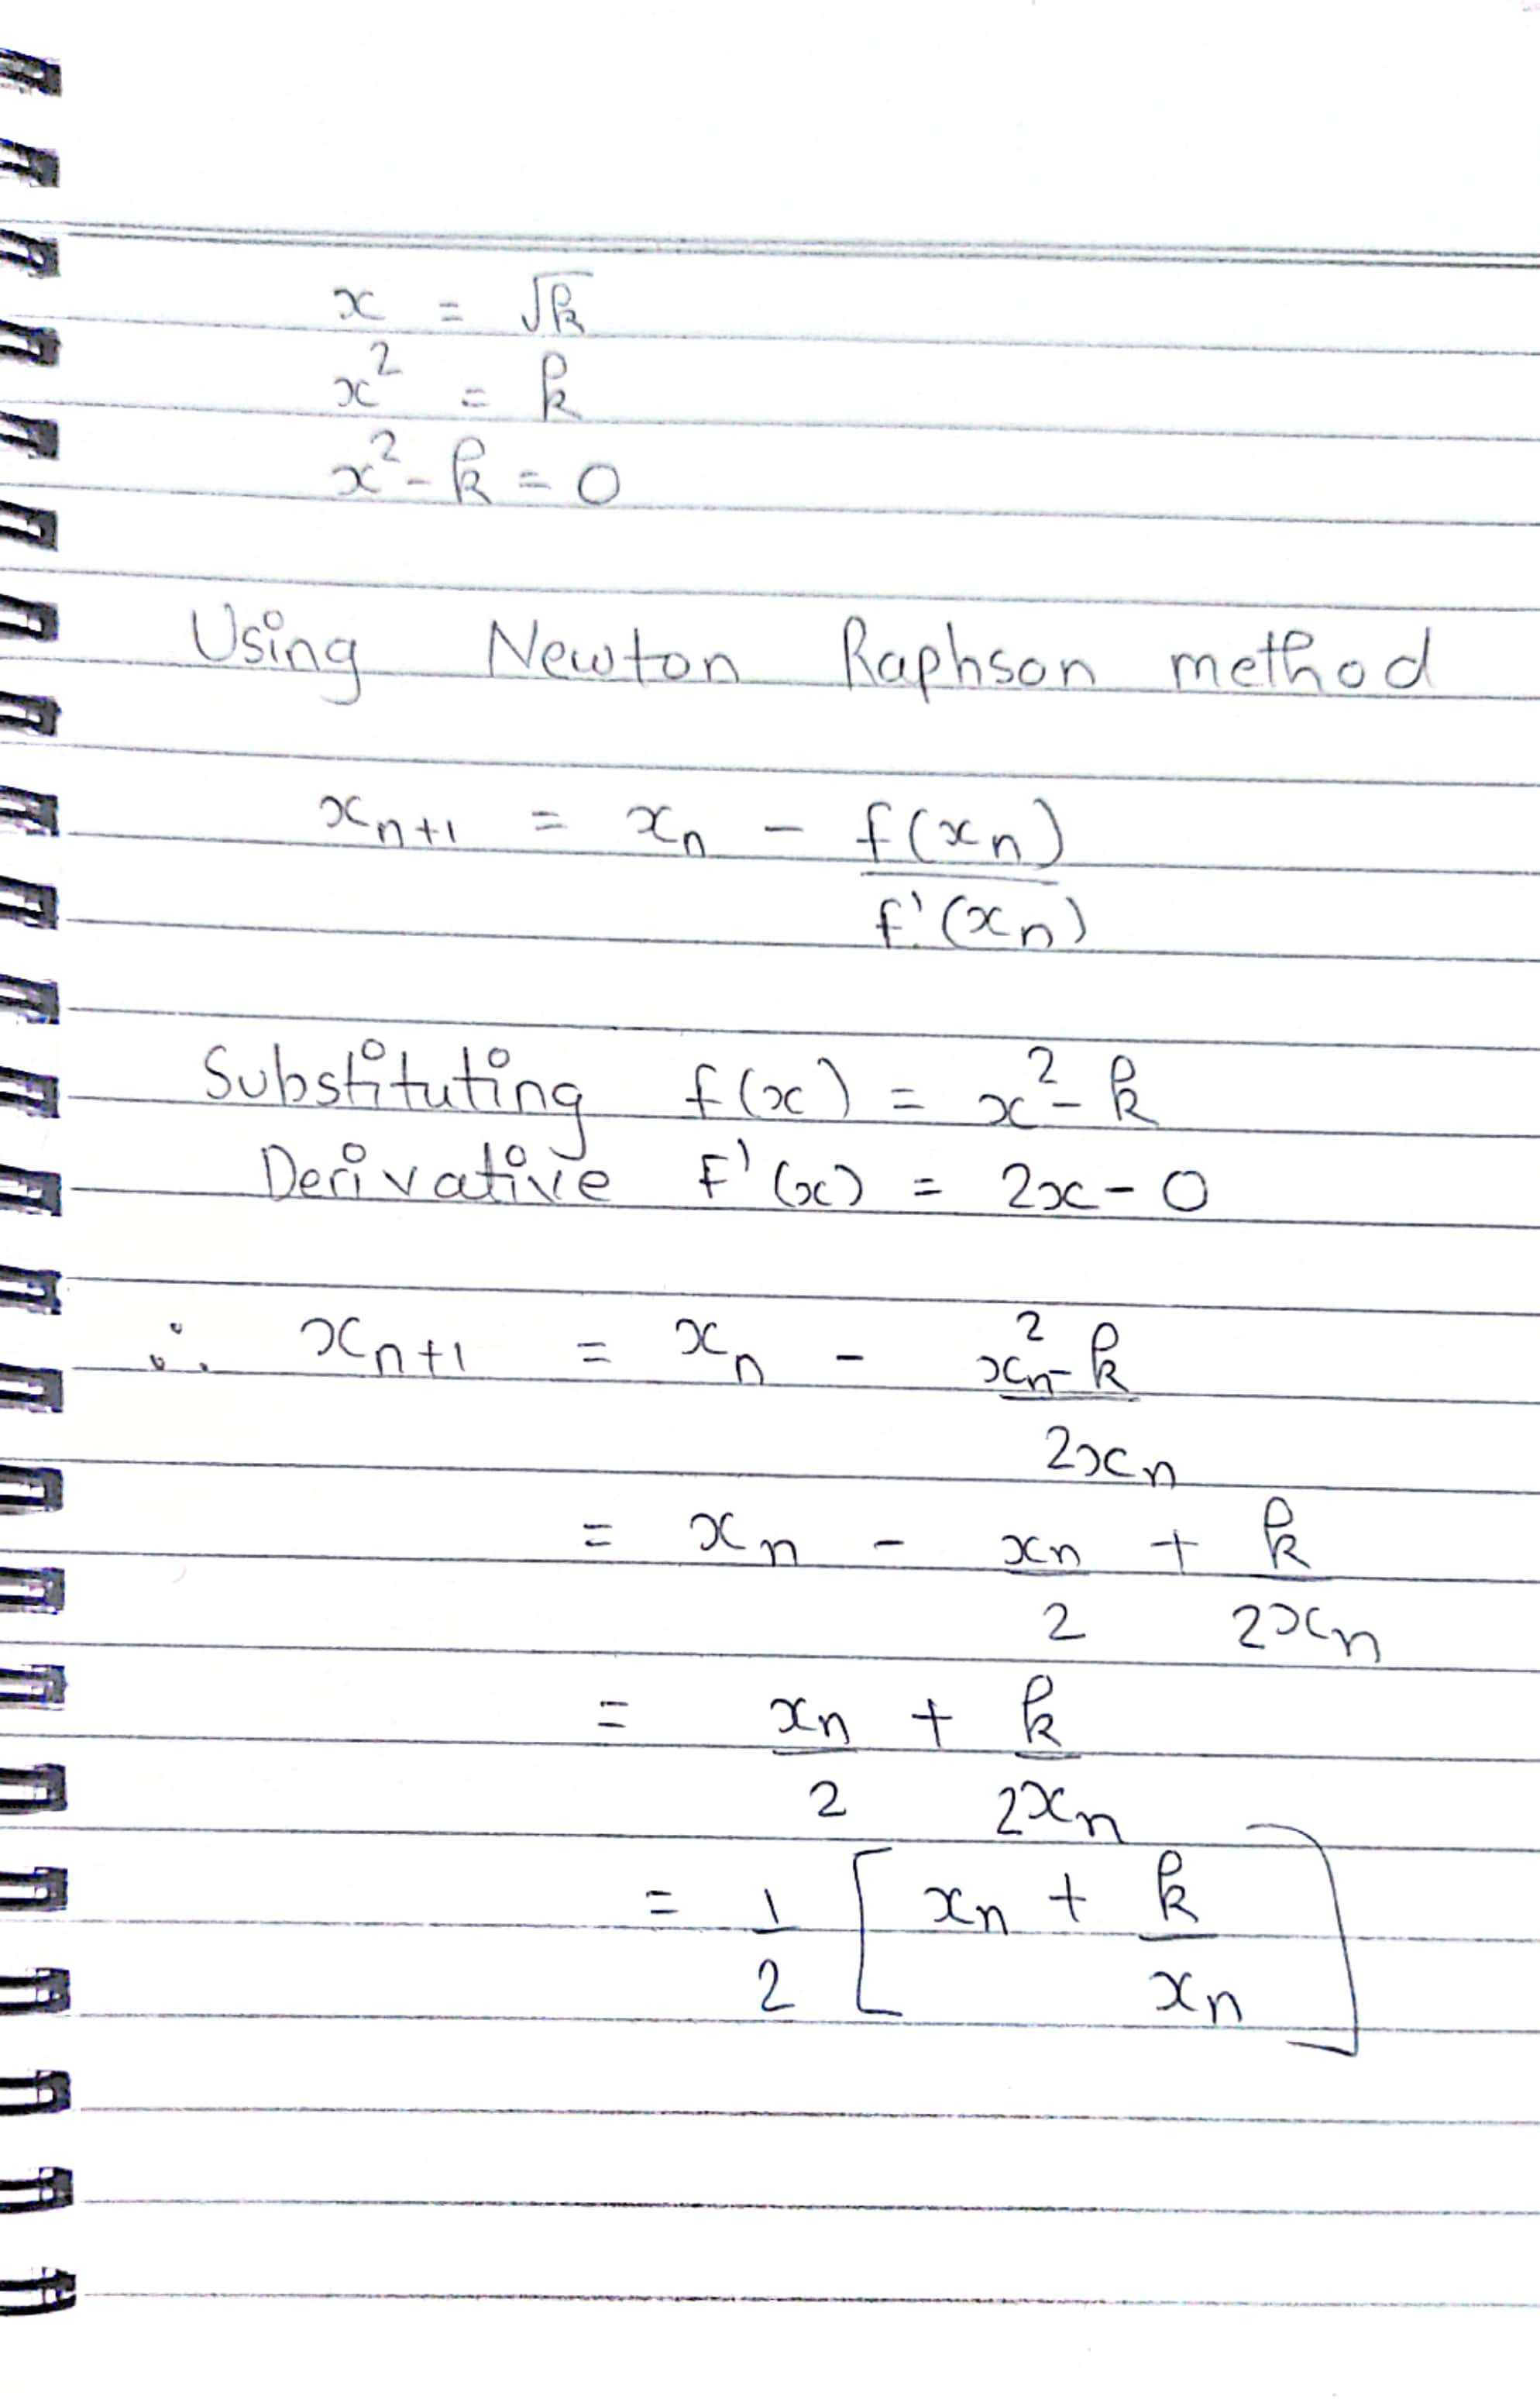 x = √k
x² = k
x² - k = 0
Using Newton Raphson method
xₙ₊₁ = xₙ - f(xₙ)
f'(xₙ)
Substituting f(x) = x² - k
Derivative F'(x) = 2x - 0
∴ xₙ₊₁ = xₙ - xₙ² - k
2xₙ
= xₙ - xₙ + k
2 2xₙ
= xₙ + k
2 2xₙ
= 1 [ xₙ + k ]
2 xₙ